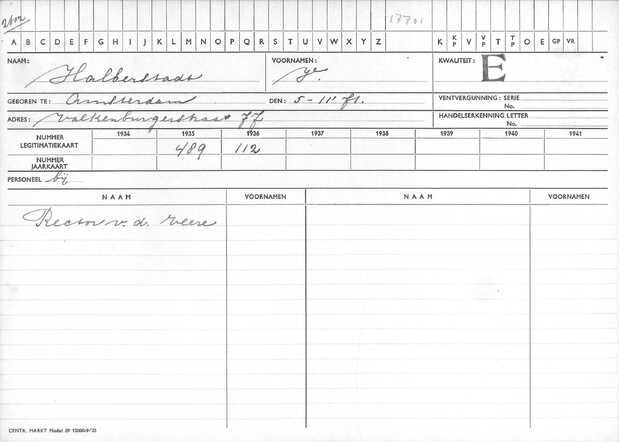 2602
17701
A B C D E F G H I J K L M N O P Q R S T U V W X Y Z K K P V V P T T P O E GP VR
NAAM: Halberstadt VOORNAMEN: KWALITEIT: E
GEBOREN TE: Amsterdam DEN: 5-11' 71. VENTVERGUNNING: SERIE No.
ADRES: Valkenburgerstraat 77 HANDELSERKENNING LETTER No.
NUMMER LEGITIMATIEKAART 1934 1935 1936 1937 1938 1939 1940 1941
489 112
NUMMER JAARKAART
PERSONEEL bij
NAAM VOORNAMEN NAAM VOORNAMEN
v. d.
CENTR. MARKT Model 39